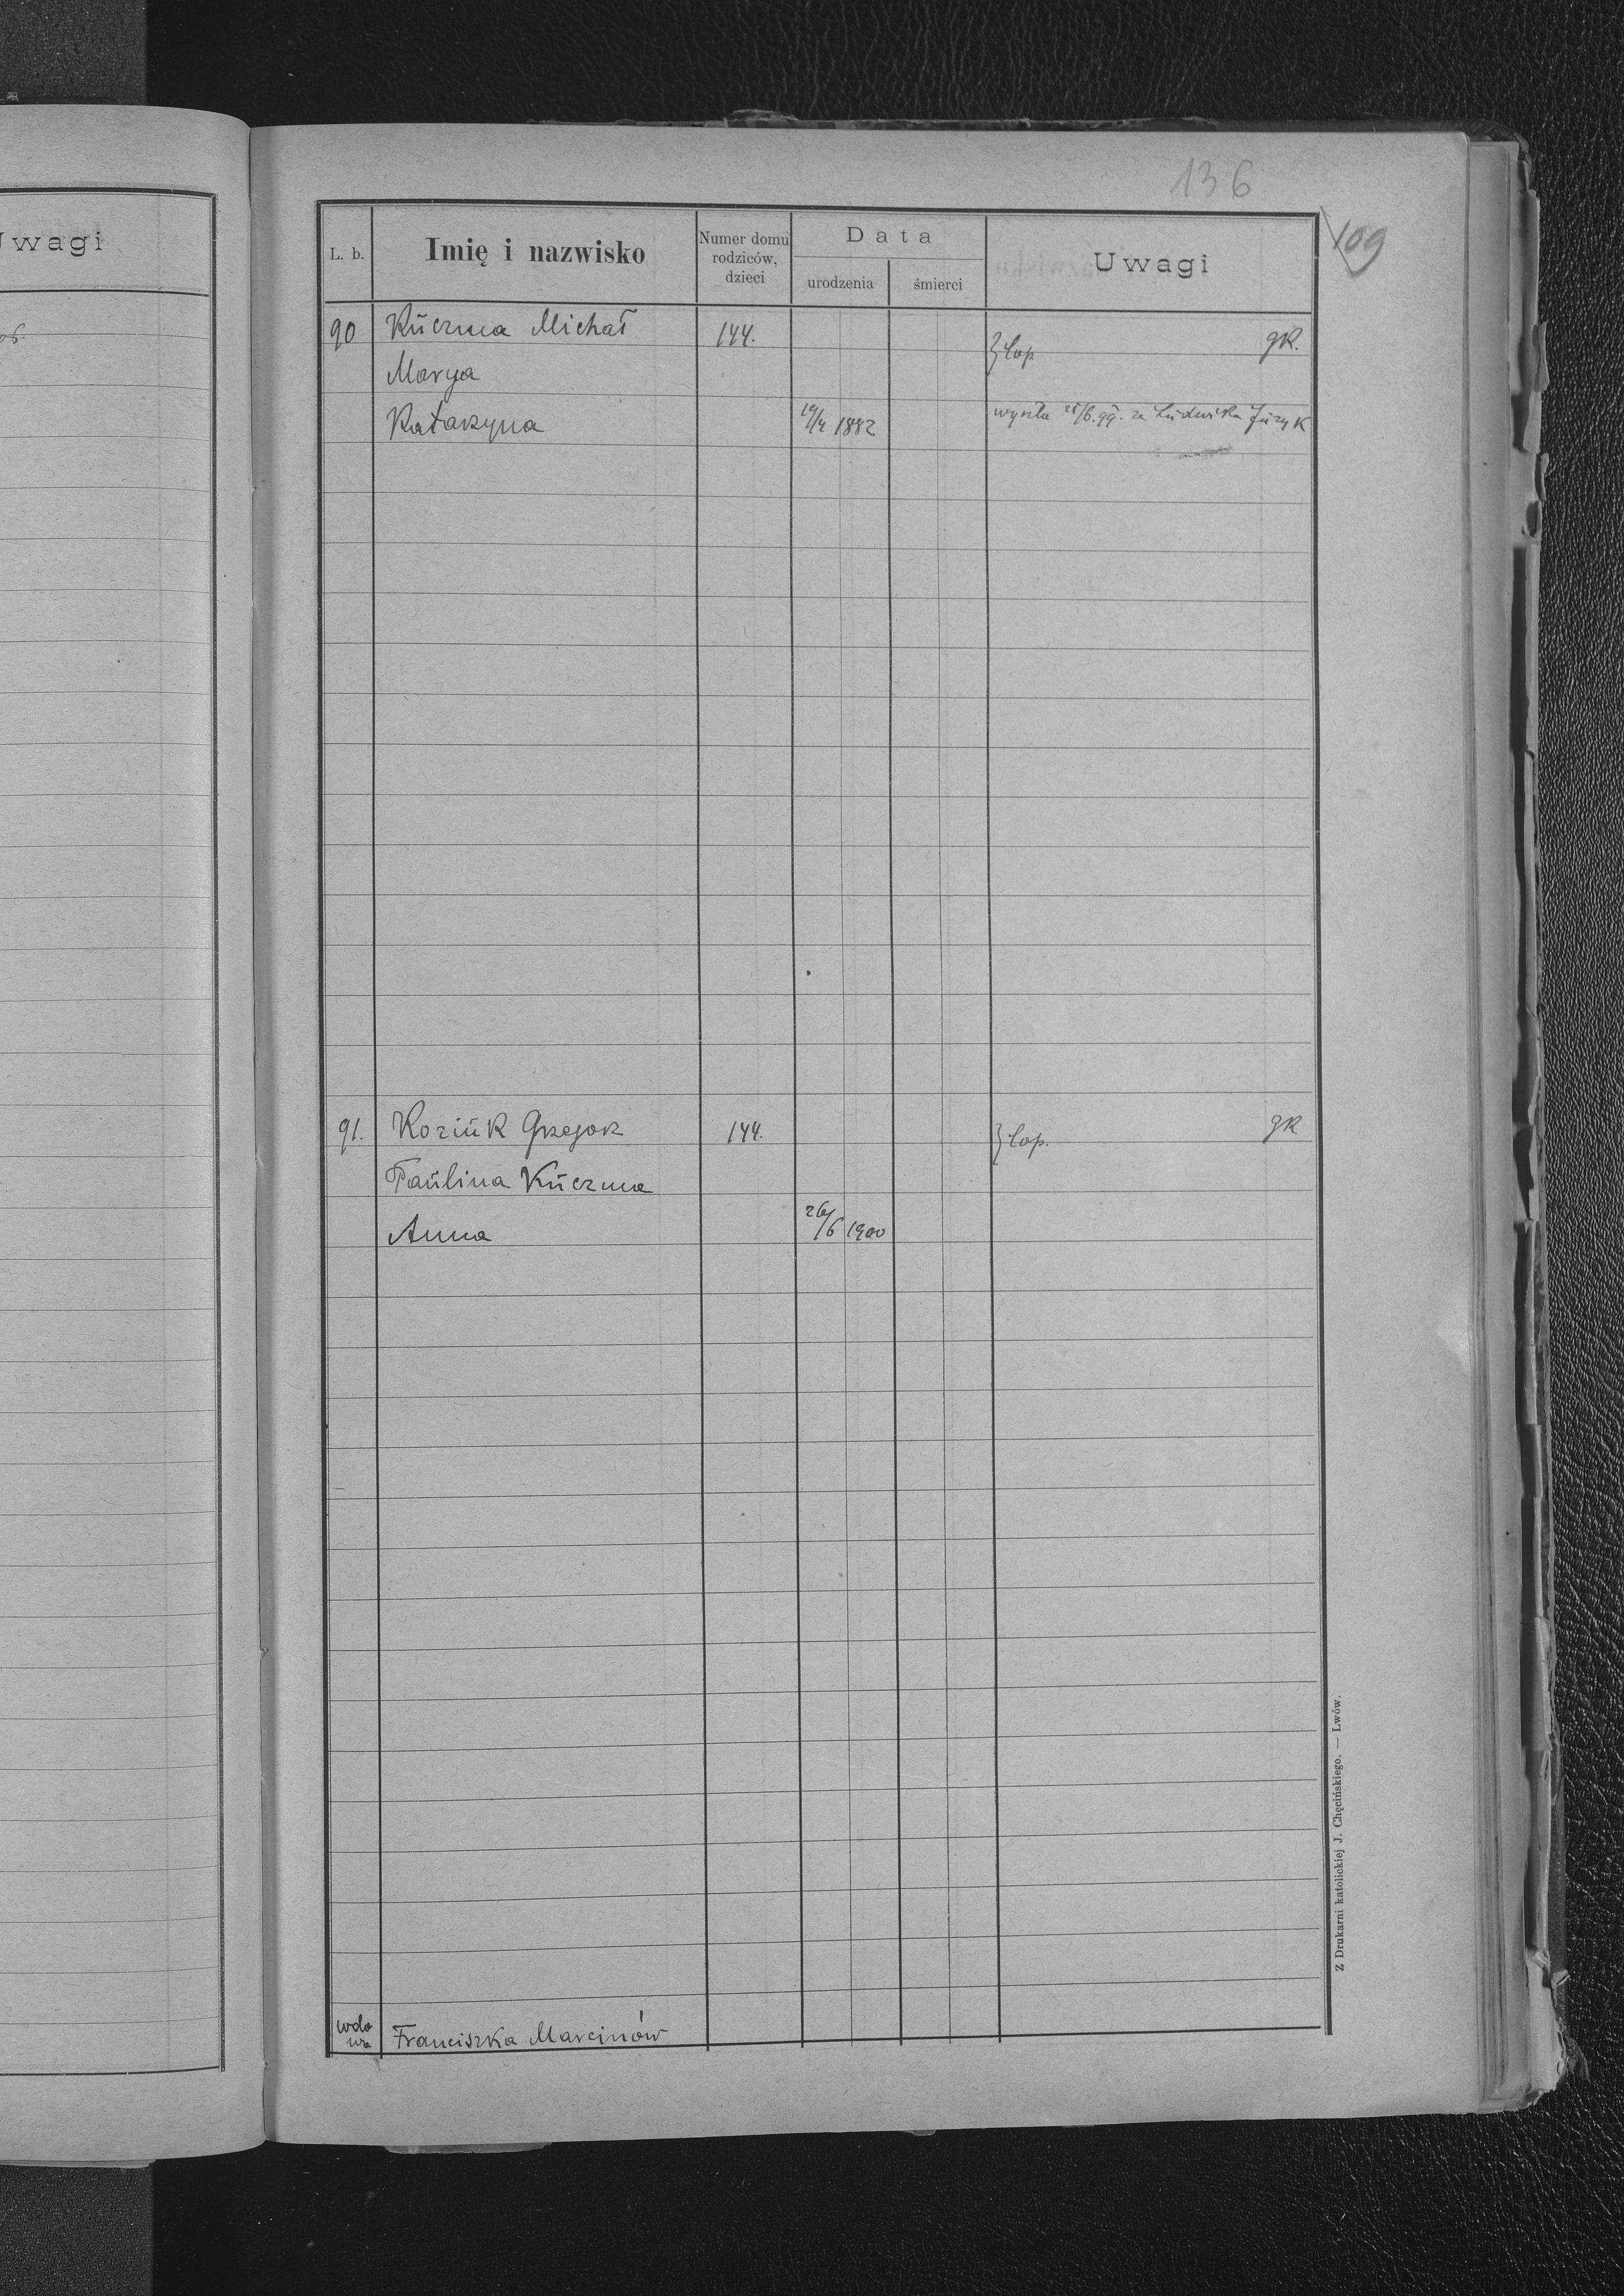 Uwagi
06.
136
109
L. b.
Imię i nazwisko
Numer domu rodziców, dzieci
Data
urodzenia
śmierci
Uwagi
90 Kŭczma Michał 144. } łop gk.
Marya
Katarzyna 19/4 1882 wyszła 25/6.99. za Lŭdwika Jŭzyk
91. Koziŭk Grzegorz 144. } łop. gk
Paŭlina Kŭczma
Anna 26/6 1900
wdowa Franciszka Marcinów
Z Drukarni katolickiej J. Chęcińskiego. — Lwów.